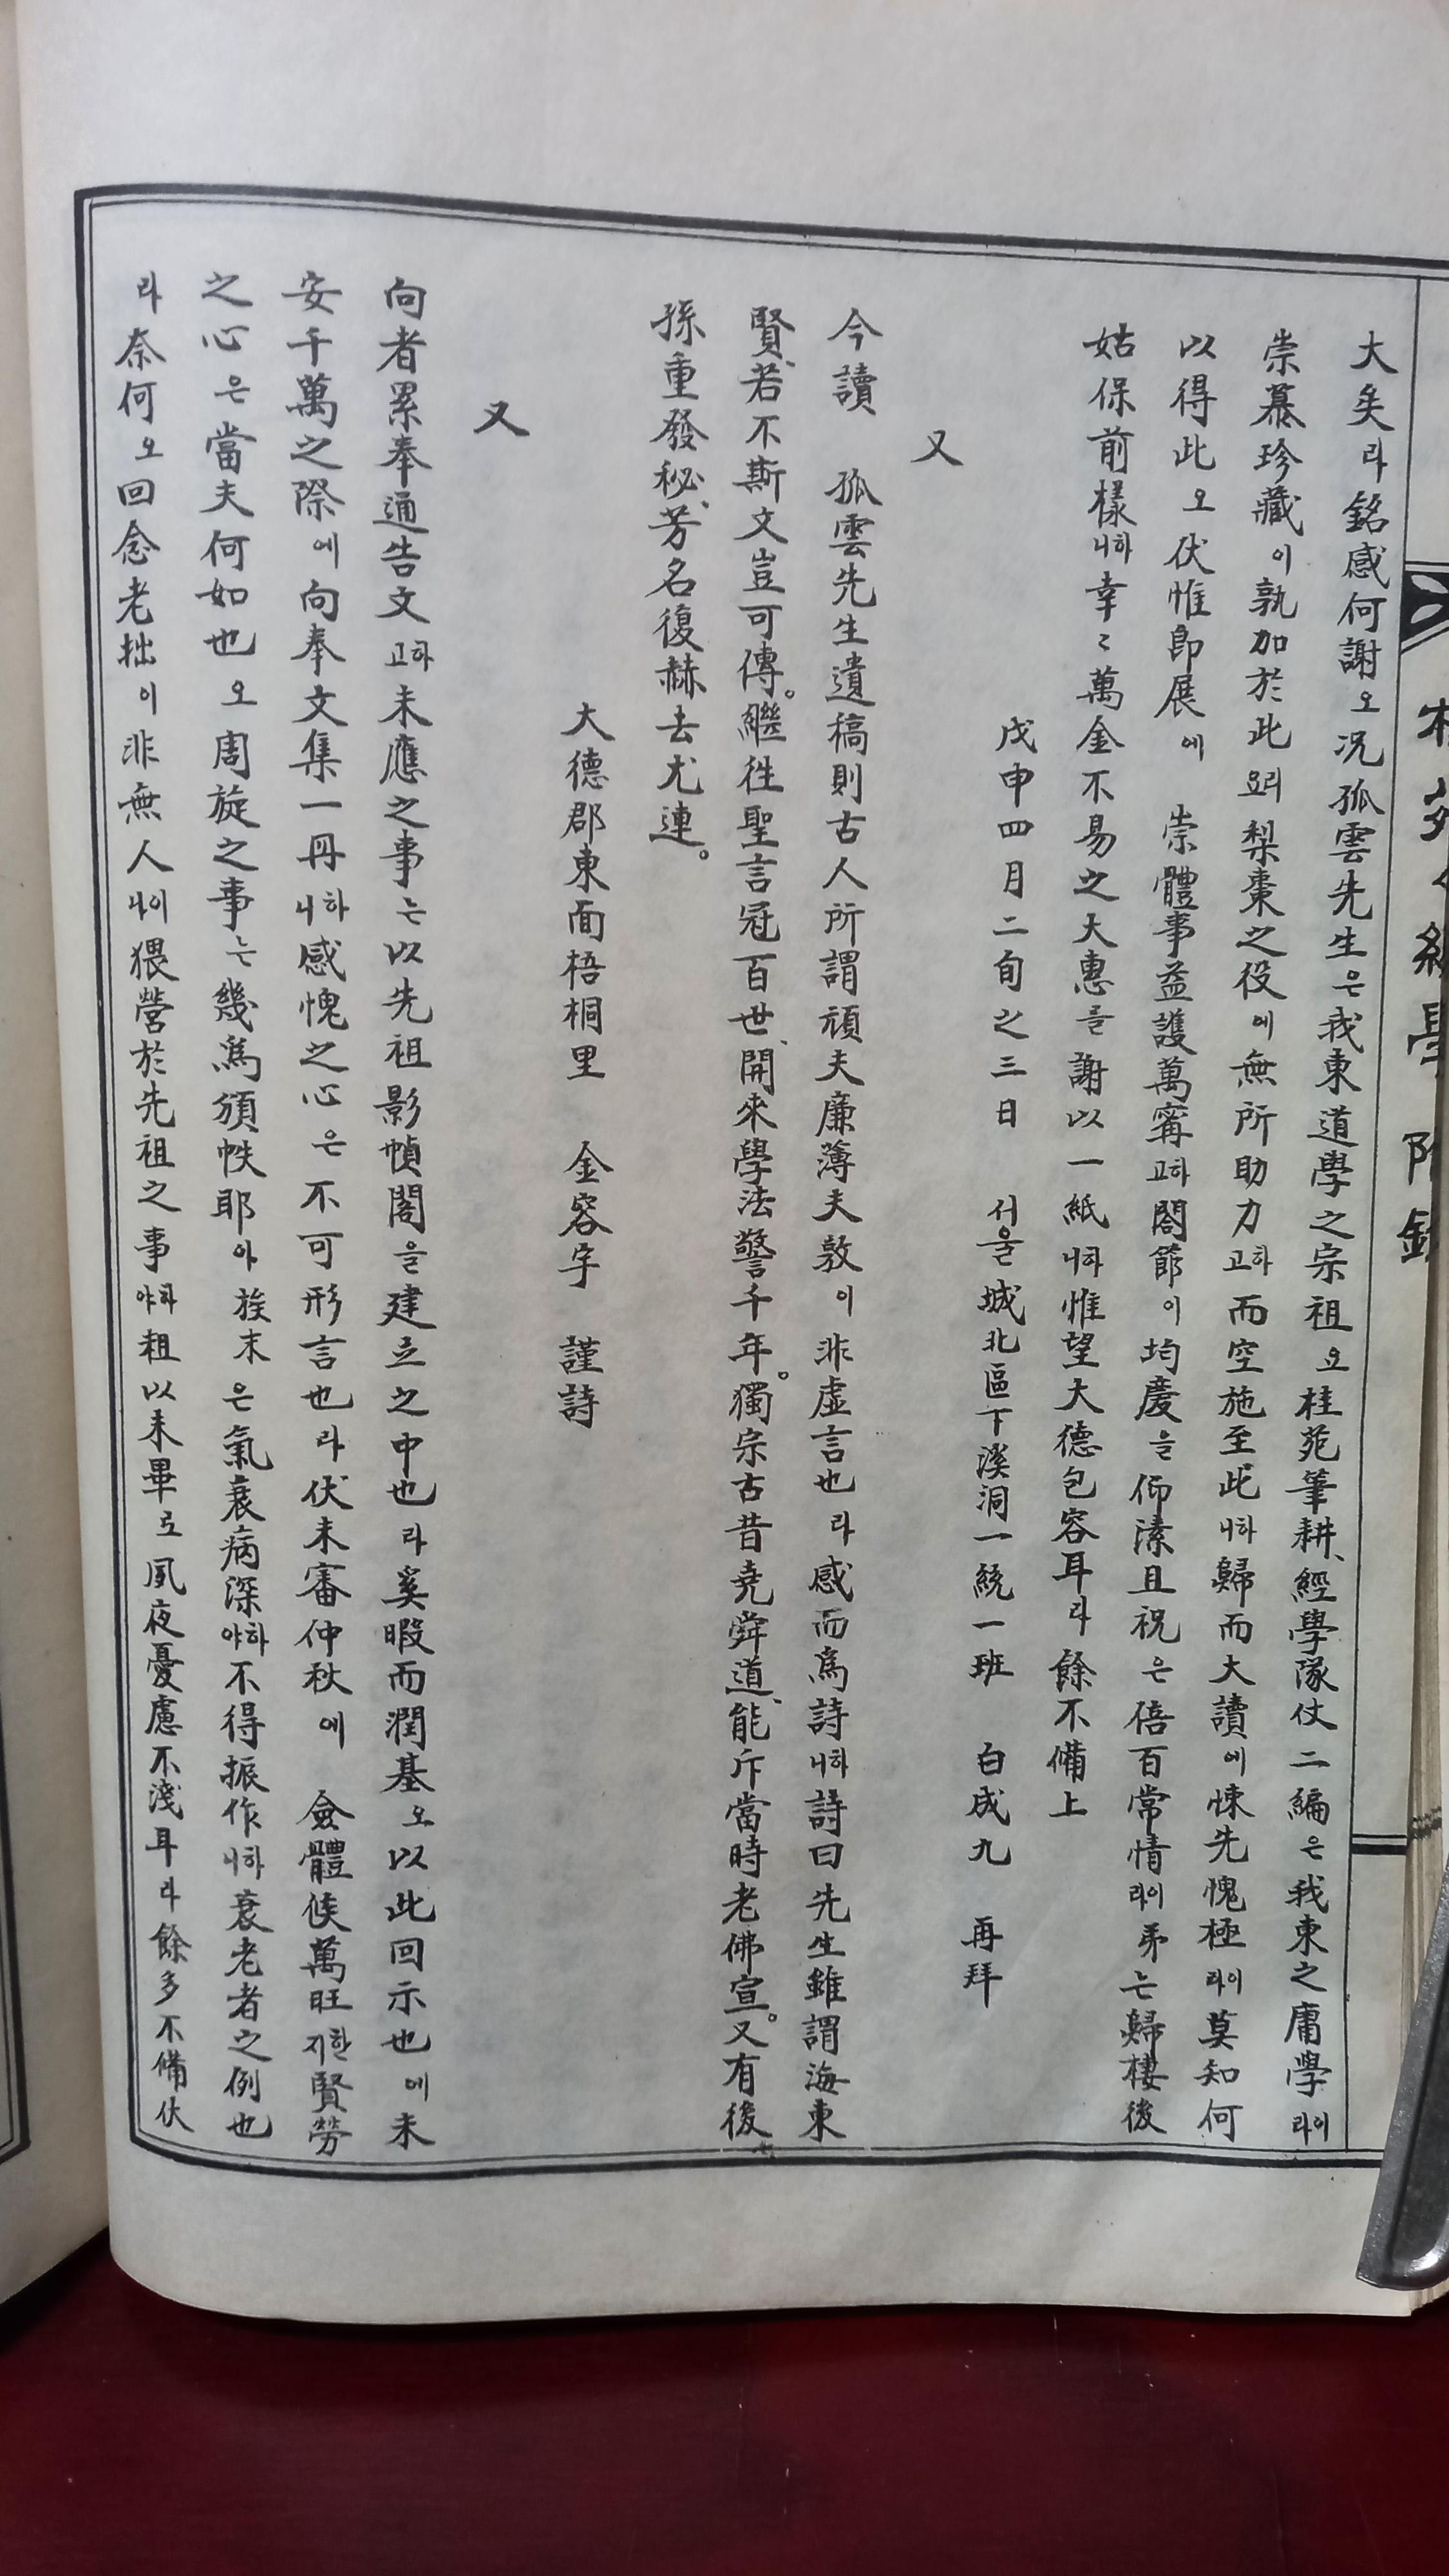 大矣라銘感何謝오况孤雲先生은我東道學之宗祖요桂苑筆耕、經學隊仗二編은我東之庸學이라
崇慕珍藏이孰加於此리요梨棗之役에無所助力하고而空施至此하니歸而大讀에悚先愧極이라莫知何
以得此오伏惟卽展에 崇體事益護萬寗하고閤節이均慶을仰溸且祝은倍百常情이라弟는歸棲後
姑保前樣하니幸〻萬金不易之大惠를謝以一紙하니惟望大德包容耳라餘不備上
戊申四月二旬之三日 서울城北區下溪洞一統一班 白成九 再拜
又
今讀 孤雲先生遺稿則古人所謂頑夫廉薄夫敦이非虛言也라感而爲詩하니詩曰先生雖謂海東
賢、若不斯文豈可傳。繼徃聖言冠百世、開來學法警千年。獨宗古昔堯舜道、能斥當時老佛宣。又有後
孫重發秘、芳名復赫去尤連。
大德郡東面梧桐里 金容字 謹詩
又
向者累奉通告文하고未應之事는以先祖影幀閣을建立之中也라奚暇而潤基오以此回示也에未
安千萬之際에向奉文集一冊하니感愧之心은不可形言也라伏未審仲秋에 僉體候萬旺한지賢勞
之心은當夫何如也오周旋之事는幾爲頒帙耶아族末은氣衰病深하야不得振作하니衰老者之例也
라奈何오回念老拙이非無人이나猥營於先祖之事하야粗以未畢로夙夜憂慮不淺耳라餘多不備伏